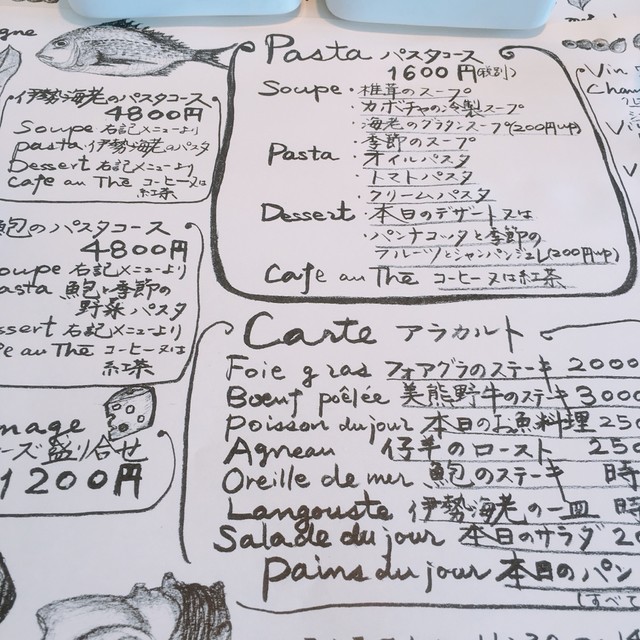 伊勢海老のパスタコース
4800円
Soupe 右記メニューより
Pasta 伊勢海老のパスタ
Dessert 右記メニューより
Cafe au The コーヒー又は
紅茶
鮑のパスタコース
4800円
oupe 右記メニューより
asta 鮑と季節の
野菜パスタ
ssert 右記メニューより
fe au The コーヒー又は
紅茶
mage
ーズ盛り合せ
1200円
Pasta パスタコース
1600円(税別)
Soupe・椎茸のスープ
・カボチャの冷製スープ
・海老のグラタンスープ(200円UP)
・季節のスープ
Pasta・オイルパスタ
・トマトパスタ
・クリームパスタ
Dessert・本日のデザート又は
・パンナコッタと季節の
フルーツとシャンパンジュレ(200円UP)
Cafe au The コーヒー又は紅茶
Carte アラカルト
Foie gras フォアグラのステーキ 2000
Bœuf poêlée 美熊野牛のステーキ 3000
Poisson du jour 本日のお魚料理 250
Agneau 仔羊のロースト 250
Oreille de mer 鮑のステーキ 時
Langouste 伊勢海老の一皿 時
Salade du jour 本日のサラダ 20
Pains du jour 本日のパン
(すべて
Vin
Cham